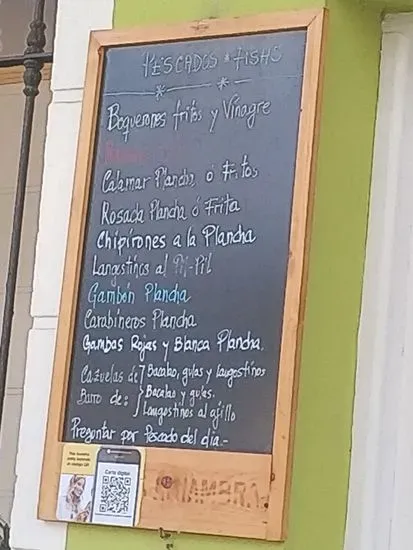 PESCADOS * FISHS
Boquerones fritos y Vinagre
Calamar Plancha ó Fritos
Rosada Plancha ó Frita
Chipirones a la Plancha
Langostinos al Pil-Pil
Gambón Plancha
Carabineros Plancha
Gambas Rojas y Blanca Plancha.
Cazuelas de Bacalao, gulas y langostinos
Barro de: Bacalao y gulas.
Langostinos al ajillo
Preguntar por Pescado del dia.-
Carta digital
ALHAMBRA